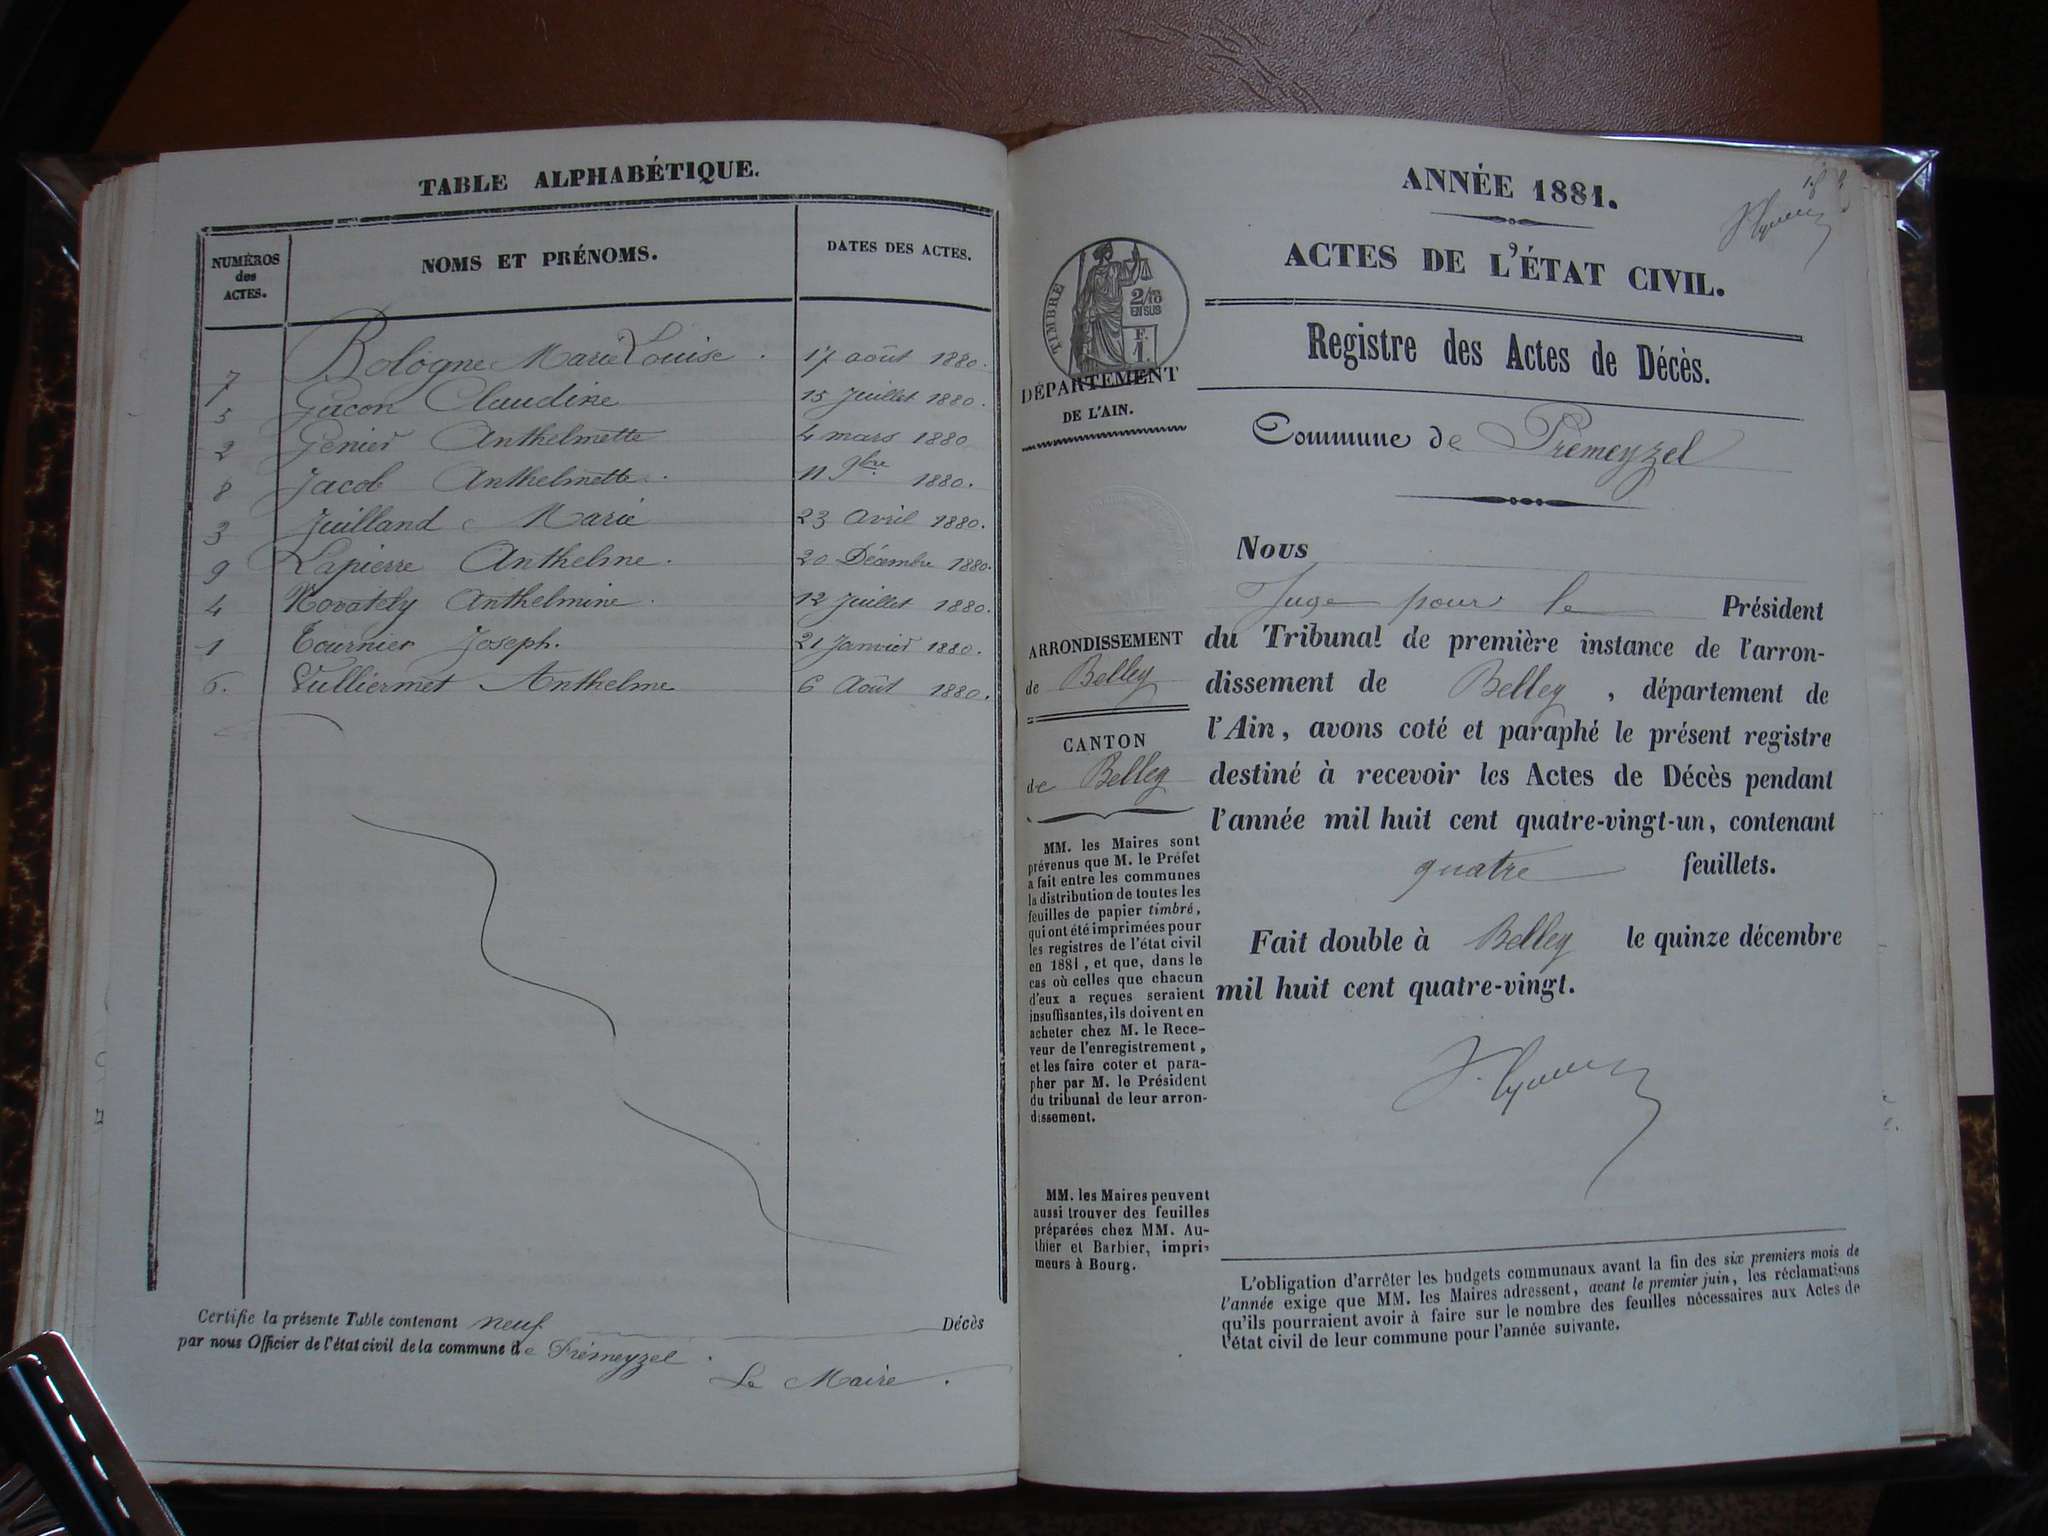 TABLE ALPHABÉTIQUE.
NUMÉROS des ACTES. NOMS ET PRÉNOMS. DATES DES ACTES.
7 Bologne Marie Louise . 17 août 1880.
5 Gacon Claudine 15 Juillet 1880.
2 Génier Anthelmette 4 mars 1880
8 Jacob Anthelmette . 11 9bre 1880.
3 Juilland Marie 23 Avril 1880.
9 Lapierre Anthelme . 20 Décembre 1880.
4 Anthelmine . 12 Juillet 1880.
1 Tournier Joseph. 21 Janvier 1880.
6. Vulliermet Anthelme 6 Août 1880.
Certifie la présente Table contenant neuf Décès
par nous Officier de l'état civil de la commune de Prémeyzel .
Le Maire .
ANNÉE 1881.
ACTES DE L'ÉTAT CIVIL.
Registre des Actes de Décès.
TIMBRE
2/10
EN SUS
F.
1.
DÉPARTEMENT
DE L'AIN.
Commune de Prémeyzel
Nous
Juge pour le Président
du Tribunal de première instance de l'arron-
dissement de Belley , département de
l'Ain, avons coté et paraphé le présent registre
destiné à recevoir les Actes de Décès pendant
l'année mil huit cent quatre-vingt-un, contenant
quatre feuillets.
Fait double à Belley le quinze décembre
mil huit cent quatre-vingt.
ARRONDISSEMENT
de Belley
CANTON
de Belley
MM. les Maires sont
prévenus que M. le Préfet
a fait entre les communes
la distribution de toutes les
feuilles de papier timbré,
qui ont été imprimées pour
les registres de l'état civil
en 1881, et que, dans le
cas où celles que chacun
d'eux a reçues seraient
insuffisantes, ils doivent en
acheter chez M. le Rece-
veur de l'enregistrement,
et les faire coter et para-
pher par M. le Président
du tribunal de leur arron-
dissement.
MM. les Maires peuvent
aussi trouver des feuilles
préparées chez MM. Au-
thier et Barbier, impri-
meurs à Bourg.
L'obligation d'arrêter les budgets communaux avant la fin des six premiers mois de
l'année exige que MM. les Maires adressent, avant le premier juin, les réclamations
qu'ils pourraient avoir à faire sur le nombre des feuilles nécessaires aux Actes de
l'état civil de leur commune pour l'année suivante.